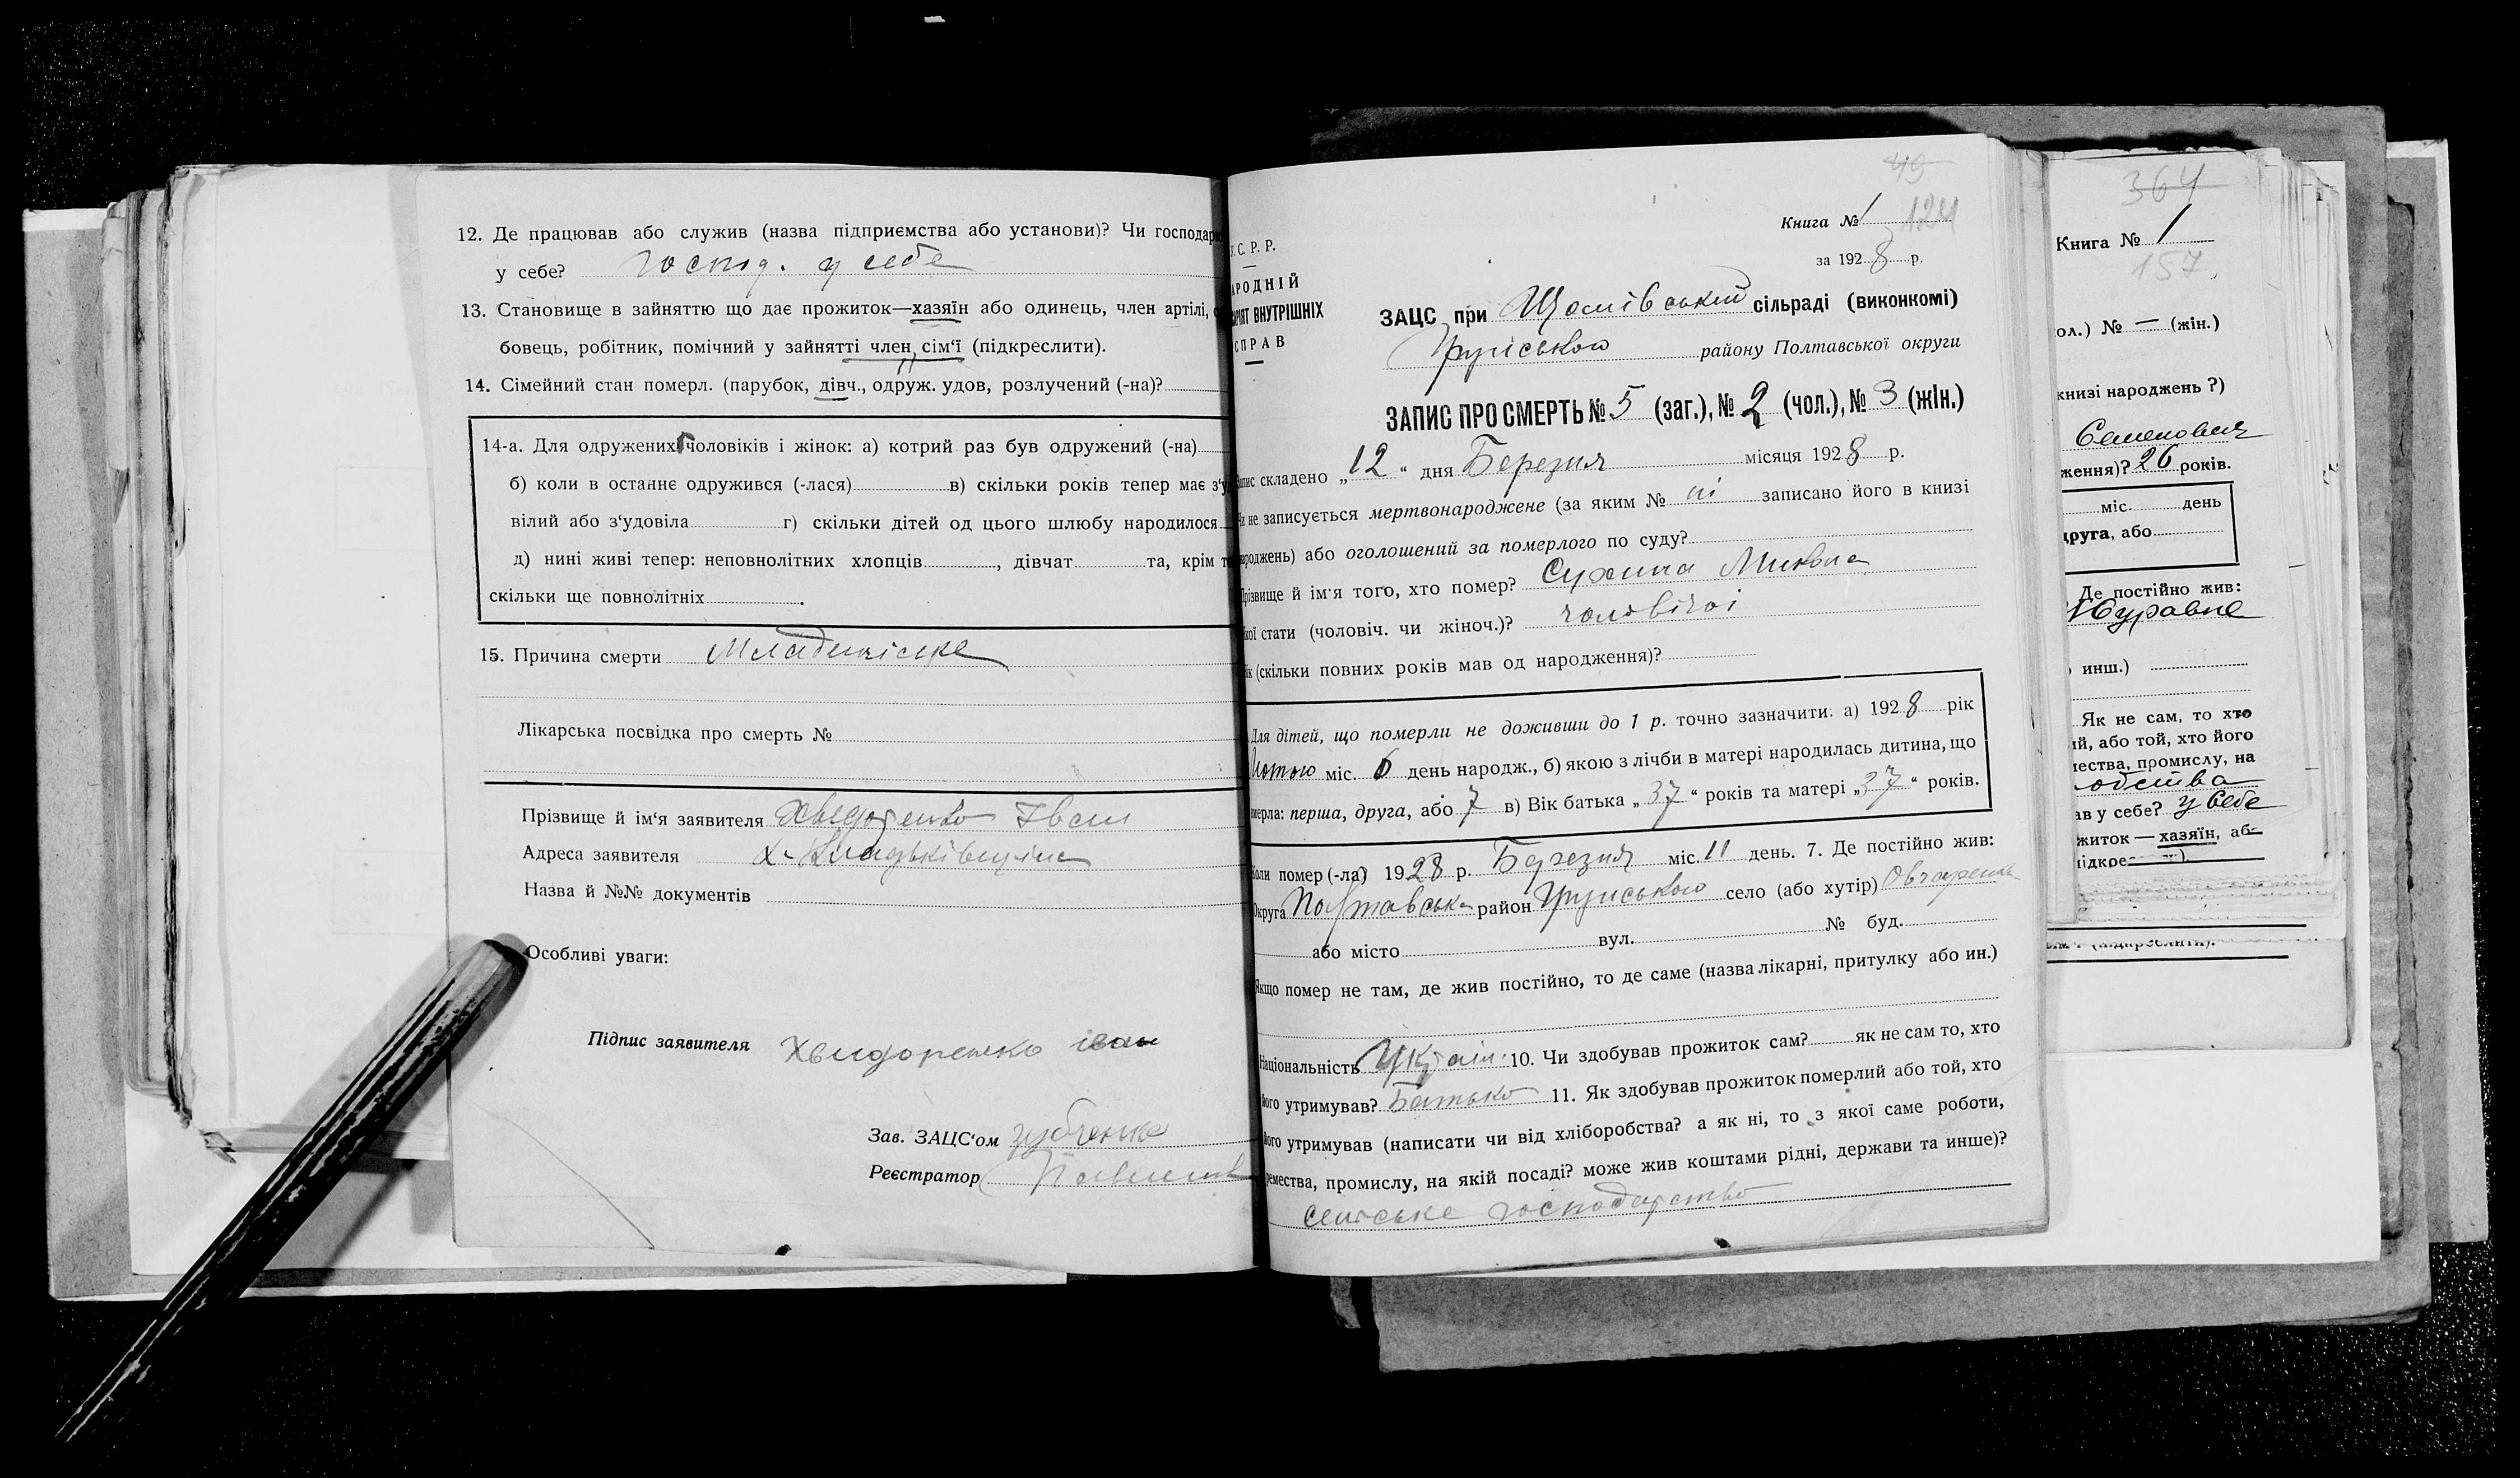 12. Де працював або служив (назва підприємства або установи)? Чи господар
у себе? госпд. у себе
13. Становище в зайняттю що дає прожиток—хазяїн або одинець, член артілі,
бовець, робітник, помічний у зайнятті член сім'ї (підкреслити).
14. Сімейний стан померл. (парубок, дівч., одруж. удов, розлучений (-на)?
14-а. Для одружених чоловіків і жінок: а) котрий раз був одружений (-на)
б) коли в останнє одружився (-лася) в) скільки років тепер має з'у
вілий або з'удовіла г) скільки дітей од цього шлюбу народилося
д) нині живі тепер: неповнолітних хлопців , дівчат та, крім т
скільки ще повнолітніх .
15. Причина смерти
Лікарська посвідка про смерть №
Прізвище й ім'я заявителя Хвидоренко Іван
Адреса заявителя х.
Назва й №№ документів
Особливі уваги:
Підпис заявителя Хвидоренко іван
Зав. ЗАЦС'ом
Реєстратор
49
Книга № 1 124
за 1928 р.
У. С. Р. Р.
АРОДНІЙ
АРІЯТ ВНУТРІШНІХ
СПРАВ
ЗАЦС при сільраді (виконкомі)
Грунського району Полтавської округи
ЗАПИС ПРО СМЕРТЬ № 5 (заг.), № 2 (чол.), № 3 (жін.)
Запис складено „12“ дня Березня місяця 1928 р.
Чи не записується мертвонароджене (за яким № ні записано його в книзі
народжень) або оголошений за померлого по суду?
Прізвище й ім'я того, хто помер? Сухина Микола
якої стати (чоловіч. чи жіноч.)? чоловічої
Вік (скільки повних років мав од народження)?
Для дітей, що померли не доживши до 1 р. точно зазначити: а) 1928 рік
Лютого міс. 6 день народж., б) якою з лічби в матері народилась дитина, що
вмерла: перша, друга, або 7 в) Вік батька „37“ років та матері „37“ років.
Коли помер (-ла) 1928 р. Березня міс. 11 день. 7. Де постійно жив:
Округа Полтавська район Грунського село (або хутір)
або місто вул. № буд.
Якщо помер не там, де жив постійно, то де саме (назва лікарні, притулку або ин.)
Національність Україн. 10. Чи здобував прожиток сам? як не сам то, хто
його утримував? Батько 11. Як здобував прожиток померлий або той, хто
його утримував (написати чи від хліборобства? а як ні, то з якої саме роботи,
ремества, промислу, на якій посаді? може жив коштами рідні, держави та инше)?
сельське господарство
364
Книга № 1
157
ол.) № — (жін.)
книзі народжень ?)
Семенович
ження)? 26 років.
міс. день
друга, або
Де постійно жив:
инш.)
Як не сам, то хто
ий, або той, хто його
мества, промислу, на
обства
ав у себе? у себе
житок — хазяїн, або